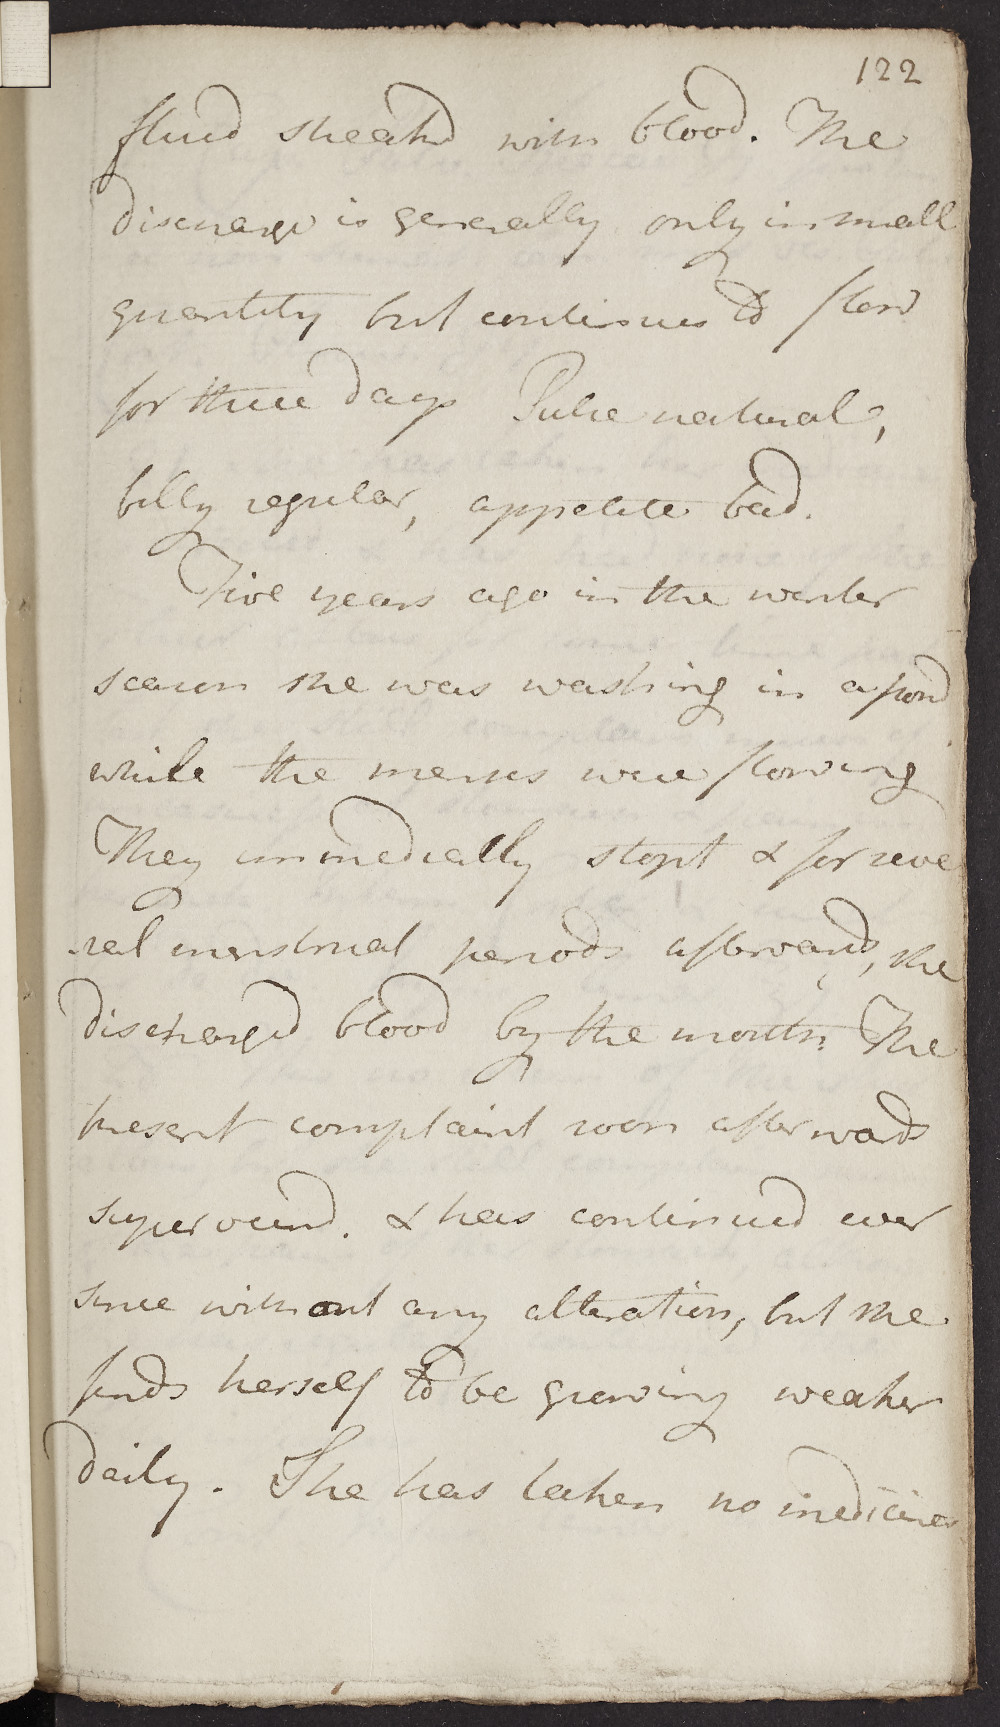 122
fluid streakd with blood. The
discharge is generally only in small
quantity but continues to flow
for three days Pulse natural,
billy regular, appetite bad.
Five years ago in the winter
season she was washing in a pond
while the menses were flowing
They immediatly stopt & for seve
ral menstrual periods afterwards, she
discharged blood by the mouth. The
present complaint soon afterwards
supervend. & has continued ever
since without any alteration, but she
finds herself to be growing weaker
daily. She has taken no medicines